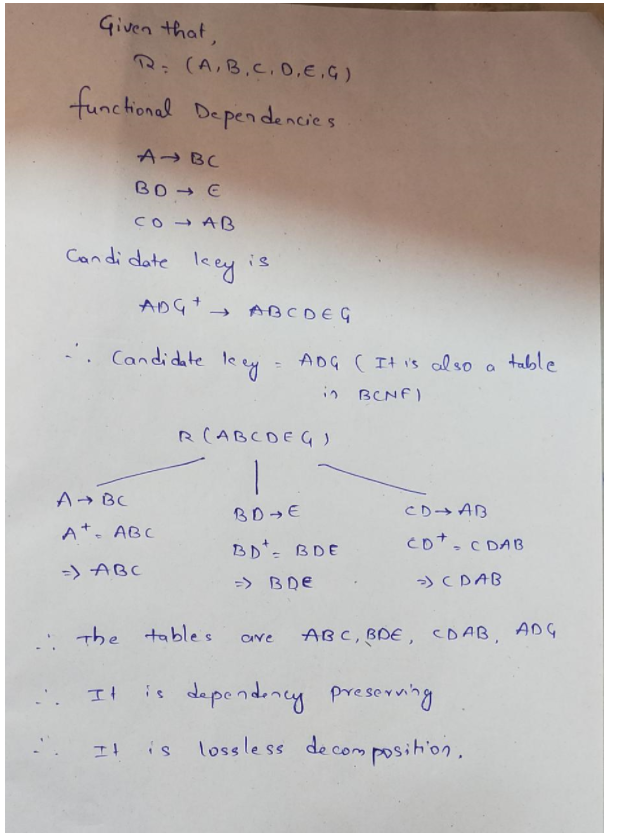 Given that,
R = (A, B, C, D, E, G)
functional Dependencies
A → BC
BD → E
CD → AB
Candidate key is
ADG⁺ → ABCDEG
∴ Candidate key = ADG ( It is also a table
in BCNF)
R (ABCDEG)
A → BC
A⁺ = ABC
=> ABC
BD → E
BD⁺ = BDE
=> BDE
CD → AB
CD⁺ = CDAB
=> CDAB
∴ The tables are ABC, BDE, CDAB, ADG
∴ It is dependency preserving
∴ It is lossless decomposition.